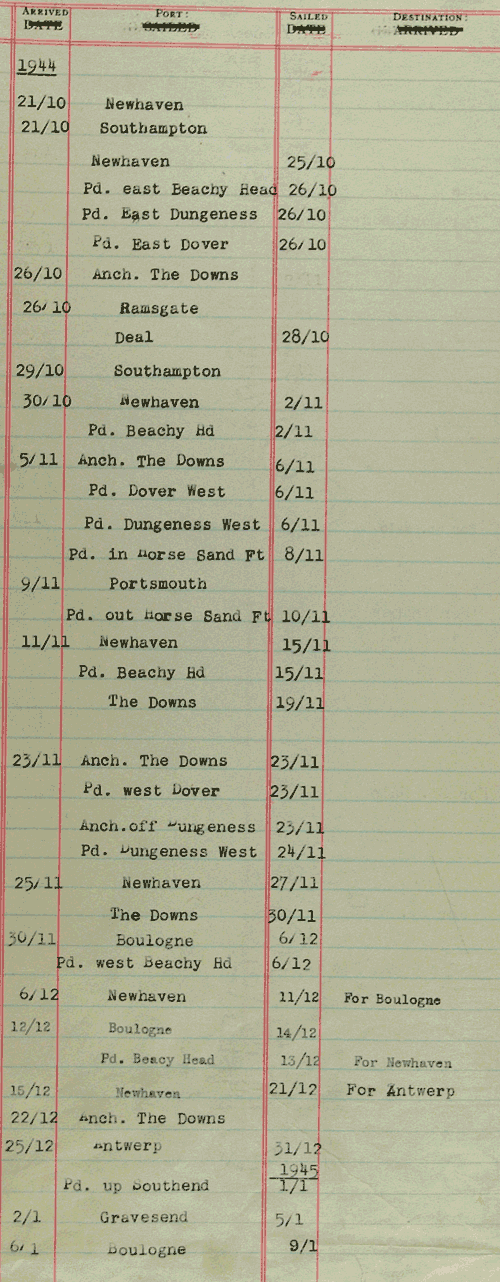 ARRIVED DATE PORT: SAILED SAILED DATE DESTINATION: ARRIVED
1944
21/10 Newhaven
21/10 Southampton
Newhaven 25/10
Pd. east Beachy Head 26/10
Pd. East Dungeness 26/10
Pd. East Dover 26/10
26/10 Anch. The Downs
26/10 Ramsgate
Deal 28/10
29/10 Southampton
30/10 Newhaven 2/11
Pd. Beachy Hd 2/11
5/11 Anch. The Downs 6/11
Pd. Dover West 6/11
Pd. Dungeness West 6/11
Pd. in Horse Sand Ft 8/11
9/11 Portsmouth
Pd. out Horse Sand Ft 10/11
11/11 Newhaven 15/11
Pd. Beachy Hd 15/11
The Downs 19/11
23/11 Anch. The Downs 23/11
Pd. west Dover 23/11
Anch.off Dungeness 23/11
Pd. Dungeness West 24/11
25/11 Newhaven 27/11
The Downs 30/11
30/11 Boulogne 6/12
Pd. west Beachy Hd 6/12
6/12 Newhaven 11/12 For Boulogne
12/12 Boulogne 14/12
Pd. Beacy Head 13/12 For Newhaven
15/12 Newhaven 21/12 For Antwerp
22/12 Anch. The Downs
25/12 Antwerp 31/12
1945
Pd. up Southend 1/1
2/1 Gravesend 5/1
6/1 Boulogne 9/1